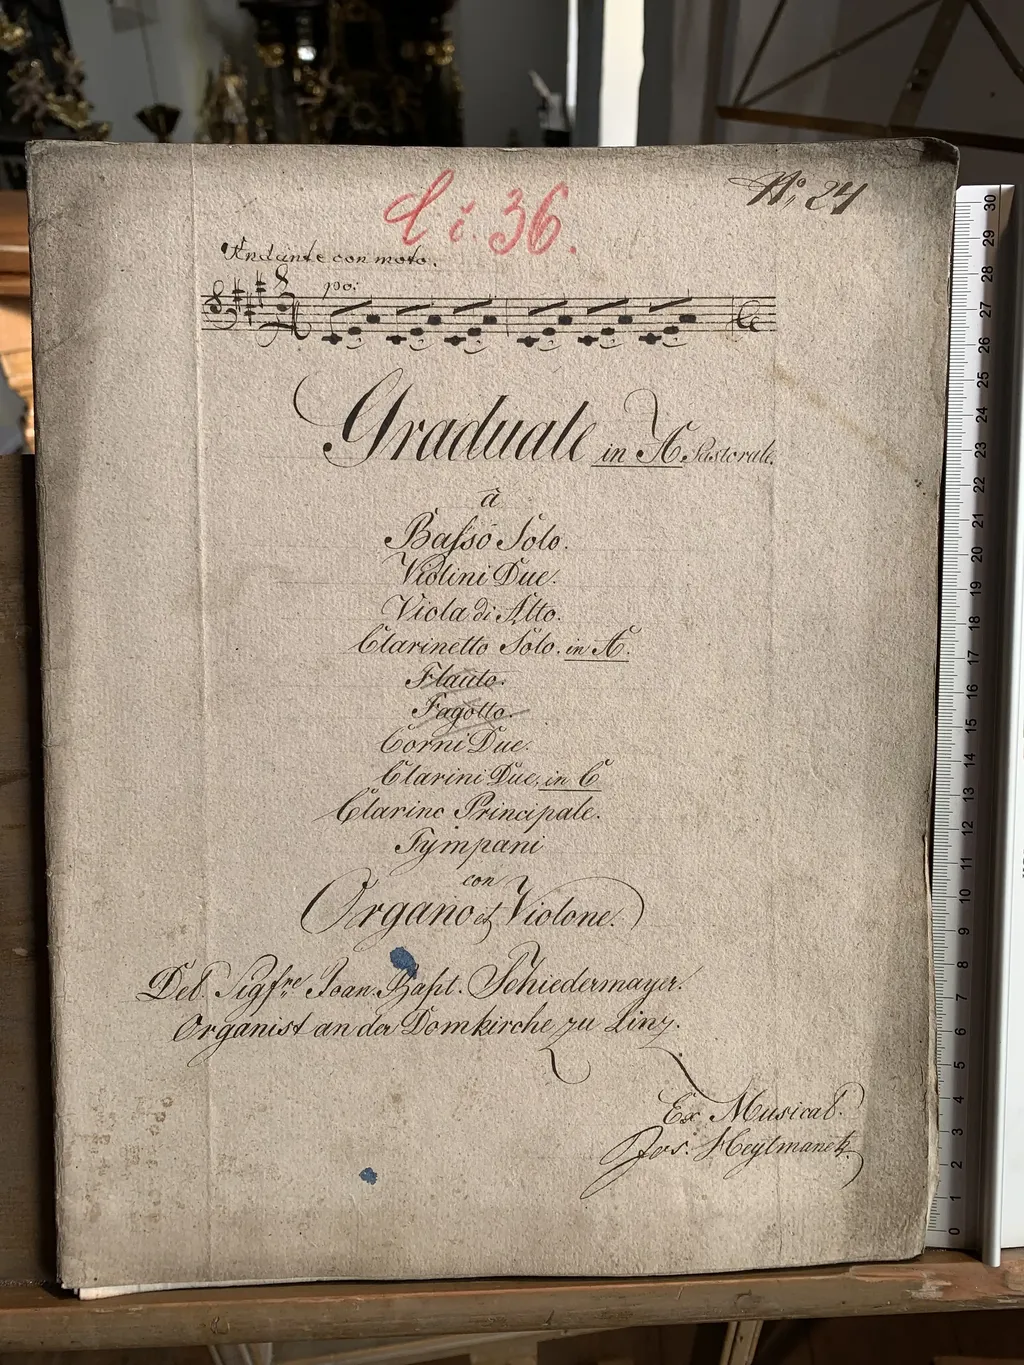 No. 24
Li. 36.
Andante con moto.
po:
Graduale in A Pastorale.
à
Basso Solo.
Violini Due.
Viola di Alto.
Clarinetto Solo. in A.
Flauto.
Fagotto.
Corni Due.
Clarini Due, in C
Clarino Principale.
Tympani
con
Organo et Violone.
Del Sigre Joan. Bapt. Schiedermayer.
Organist an der Domkirche zu Linz.
Ex Musical.
Jos. Heytmanek
30
29
28
27
26
25
24
23
22
21
20
19
18
17
16
15
14
13
12
11
10
9
8
7
6
5
4
3
2
1
0